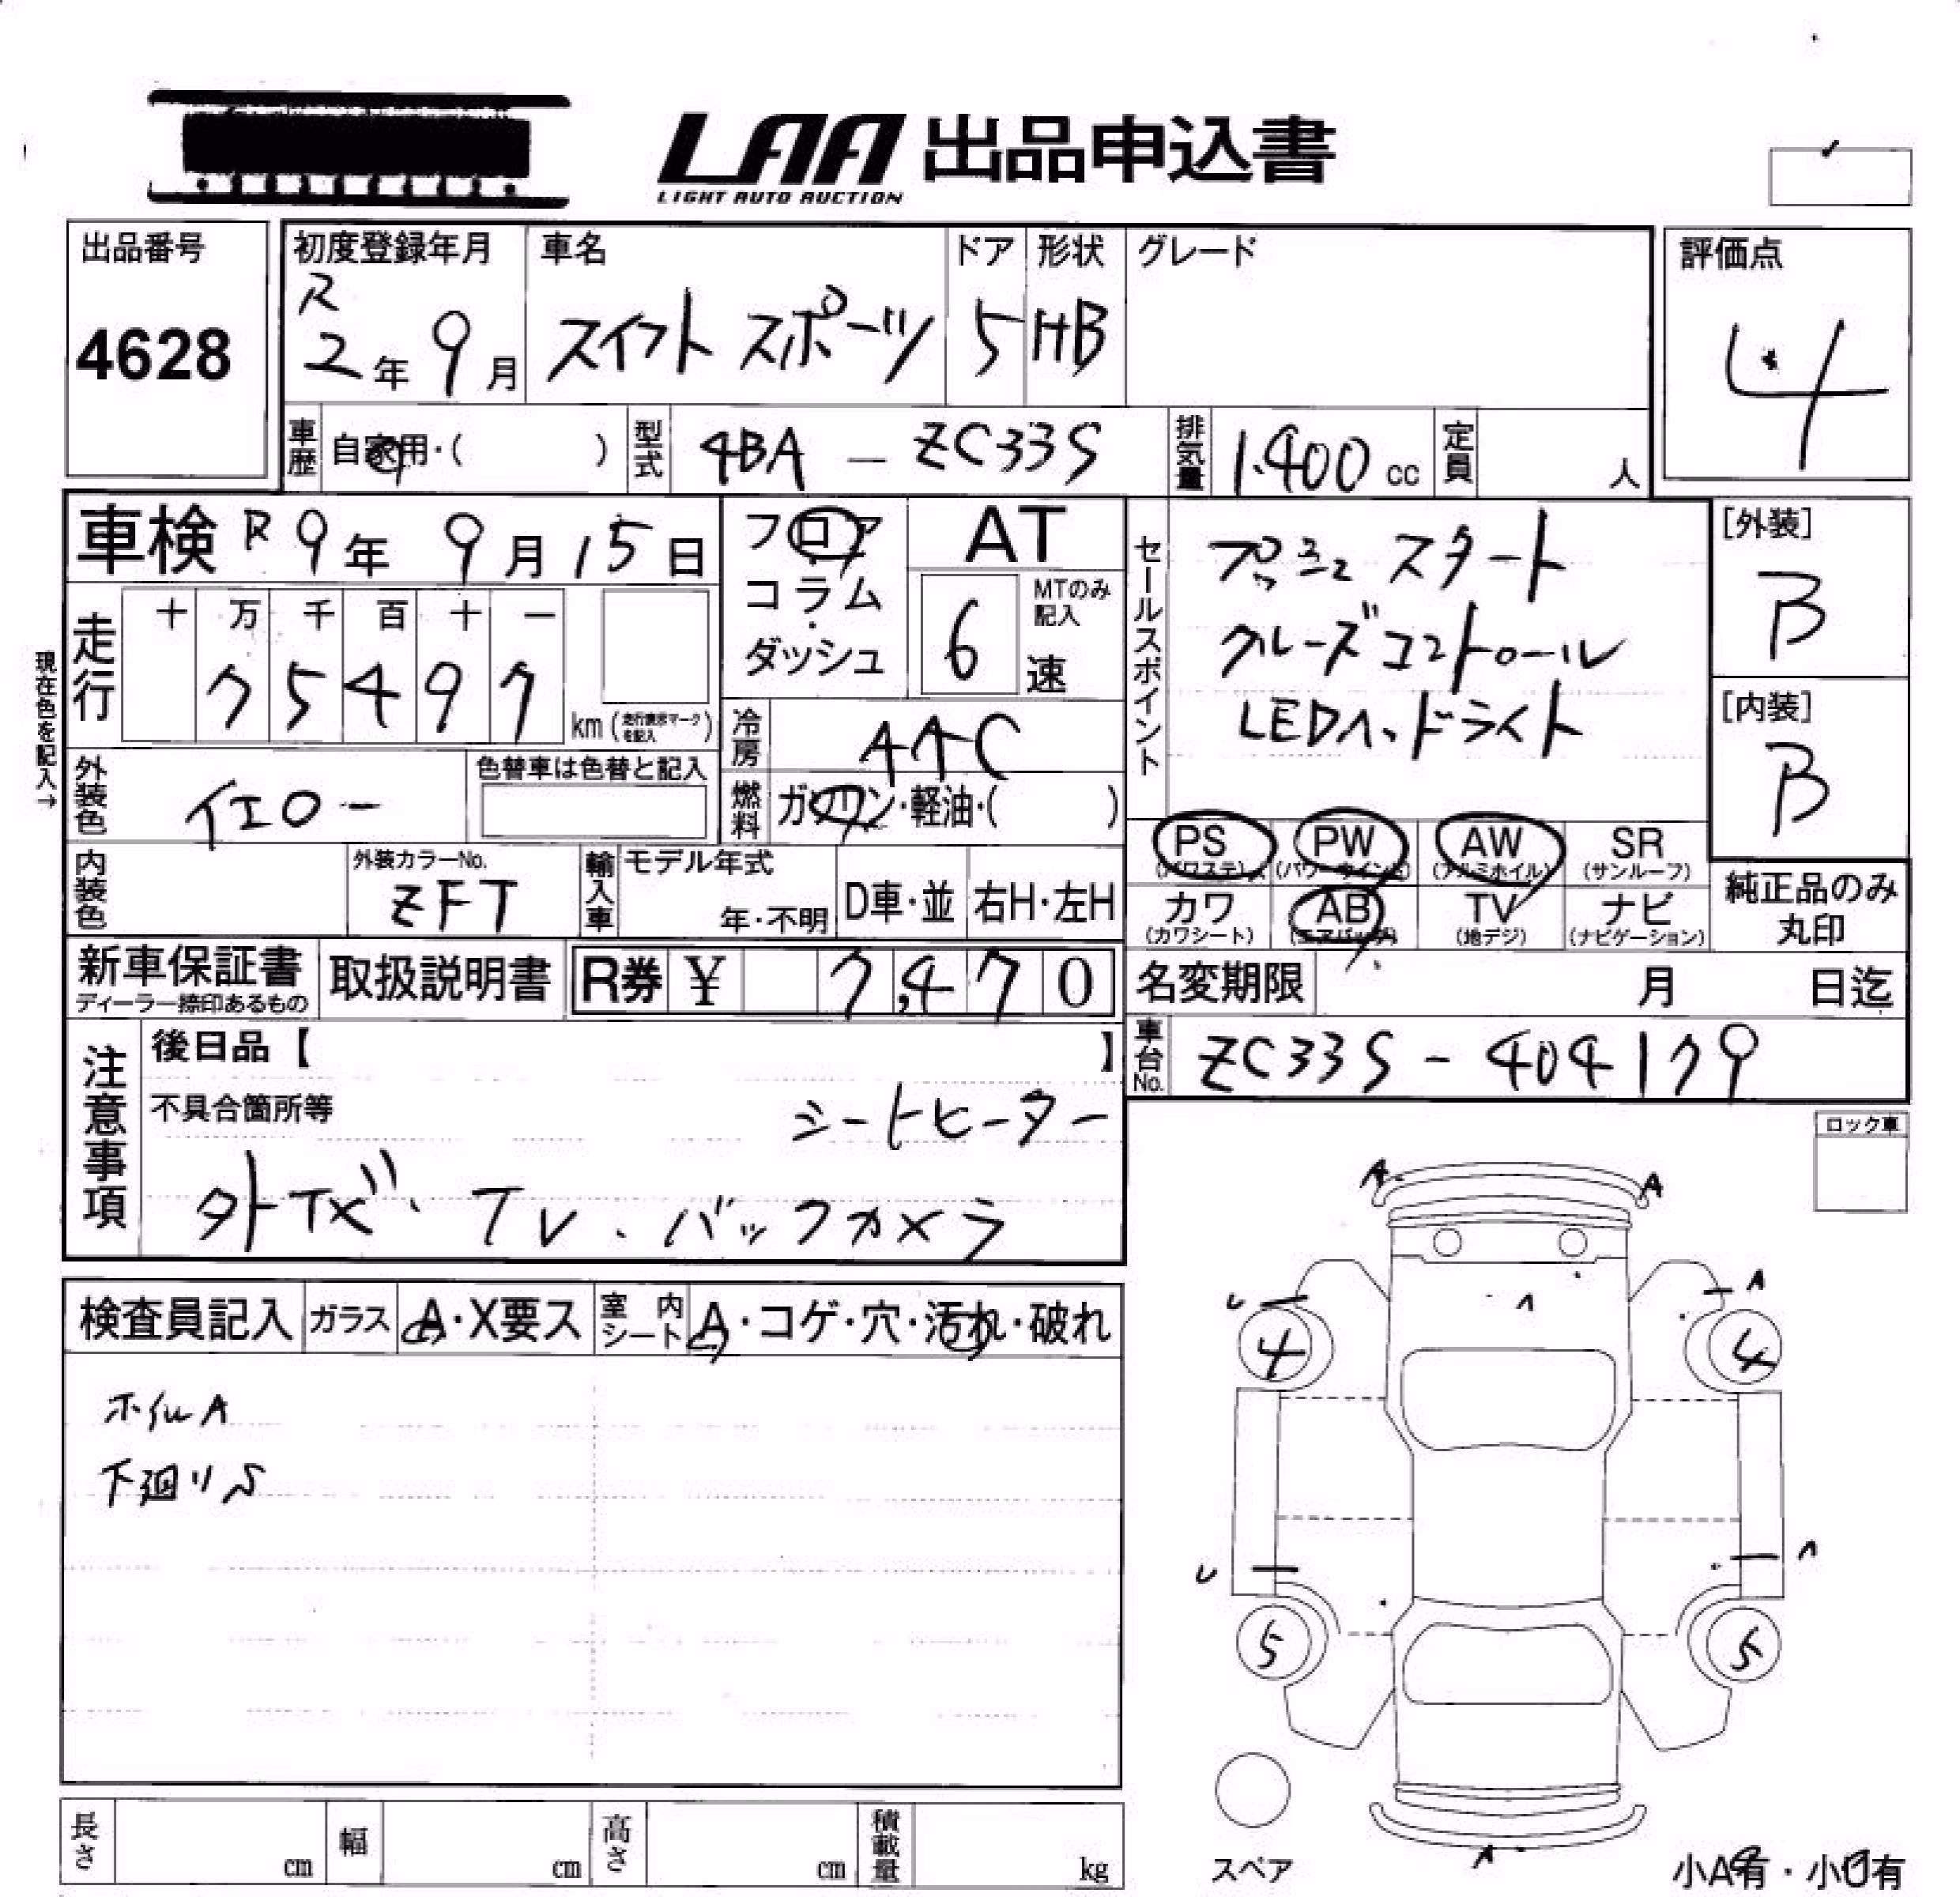 LAA 出品申込書
LIGHT AUTO AUCTION
出品番号
4628
初度登録年月
R
2年 9月
車名
スイフト スポーツ
ドア
5
形状
HB
グレード
評価点
4
車歴
自家用・( )
型式
4BA - ZC33S
排気量
1.400 cc
定員
人
車検 R 9年 9月 15日
走行
十 万 千 百 十 一
75497
km (走行表示マークを記入)
現在色を記入→
フロア
コラム
ダッシュ
AT
6
MTのみ記入
速
冷房
AAC
燃料
ガソリン・軽油・( )
セールスポイント
プッシュスタート
クルーズコントロール
LEDヘッドライト
[外装]
B
[内装]
B
外装色
イエロー
色替車は色替と記入
内装色
外装カラーNo.
ZFT
輸入車
モデル年式
年・不明
D車・並
右H・左H
PS
(パワステ)
PW
(パワーウインド)
AW
(アルミホイル)
SR
(サンルーフ)
カワ
(カワシート)
AB
(エアバッグ)
TV
(地デジ)
ナビ
(ナビゲーション)
純正品のみ
丸印
新車保証書
ディーラー捺印あるもの
取扱説明書
R券 ¥ 7,470
名変期限
月 日迄
注意事項
後日品【 】
不具合箇所等
シートヒーター
外ナビ、TV、バックカメラ
車台No.
ZC33S - 404179
ロック車
検査員記入
ガラス
A・X要ス
室内シート
A・コゲ・穴・汚れ・破れ
ホイルA
下廻りS
A
A
U
A
A
4
4
U
A
5
5
A
スペア
小A有・小U有
長さ
cm
幅
cm
高さ
cm
積載量
kg